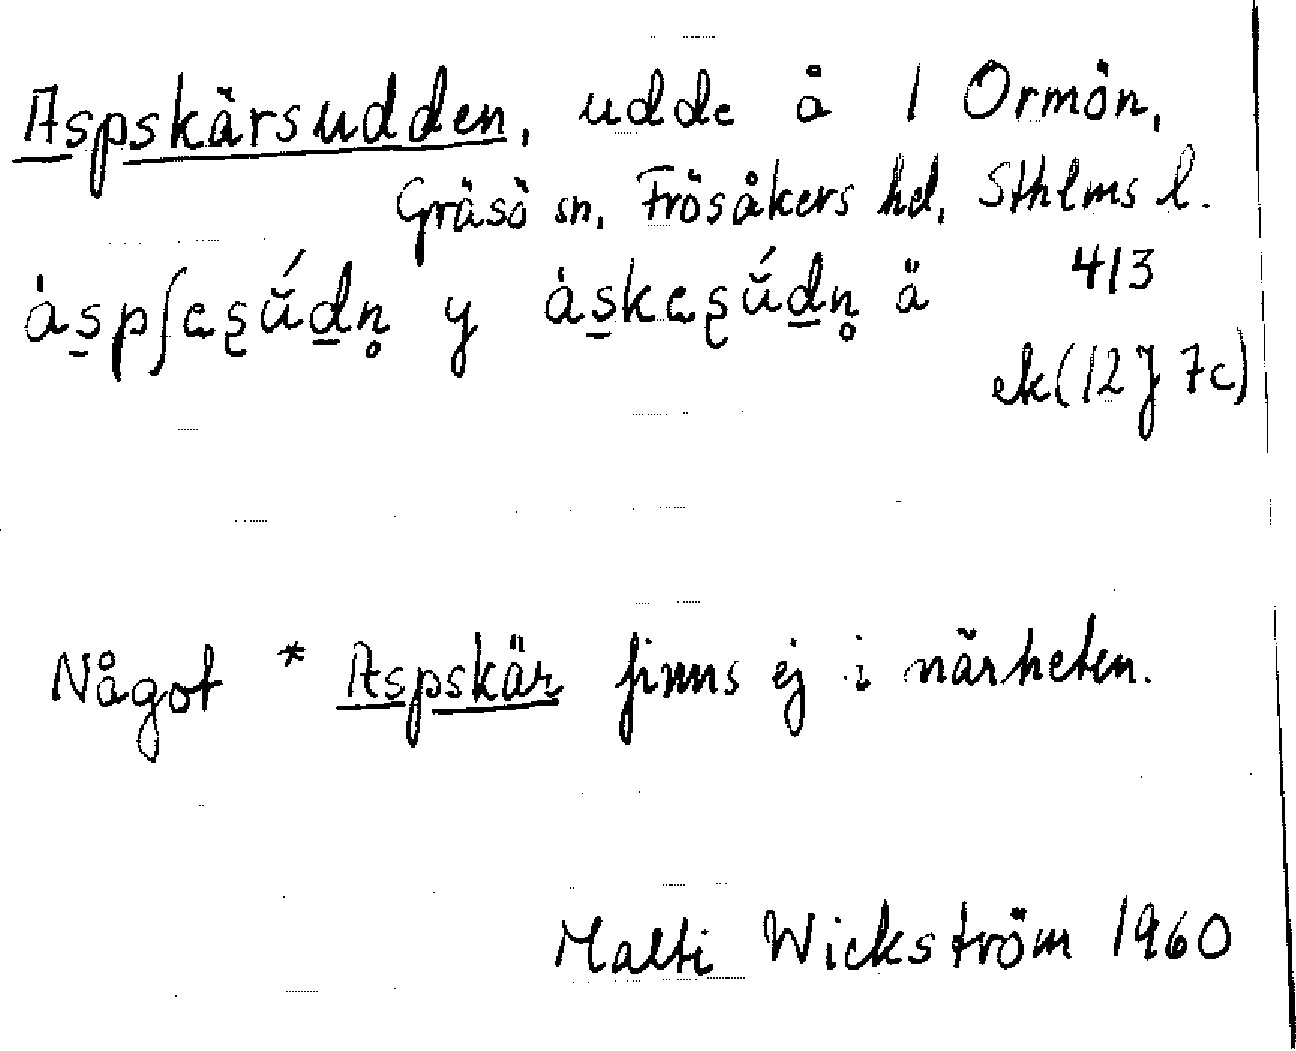 Aspskärsudden, udde å 1 Ormön,
Gräsö sn, Frösåkers hd, Sthlms l.
y ä 413
ek (12J 7c)
Något * Aspskär finns ej i närheten.
Malti Wickström 1960